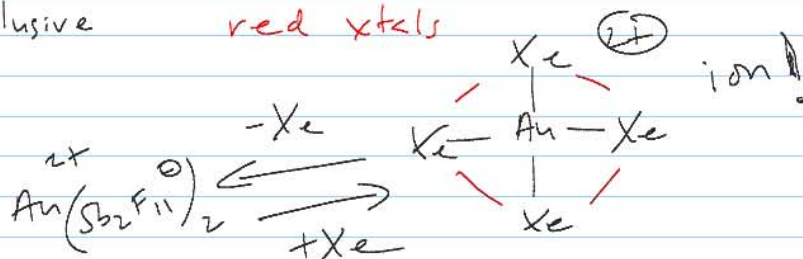 lusive red xtals
Xe 2+
ion!
-Xe
Xe — Au — Xe
2+
Au(Sb2F11⊖)2
Xe
+Xe